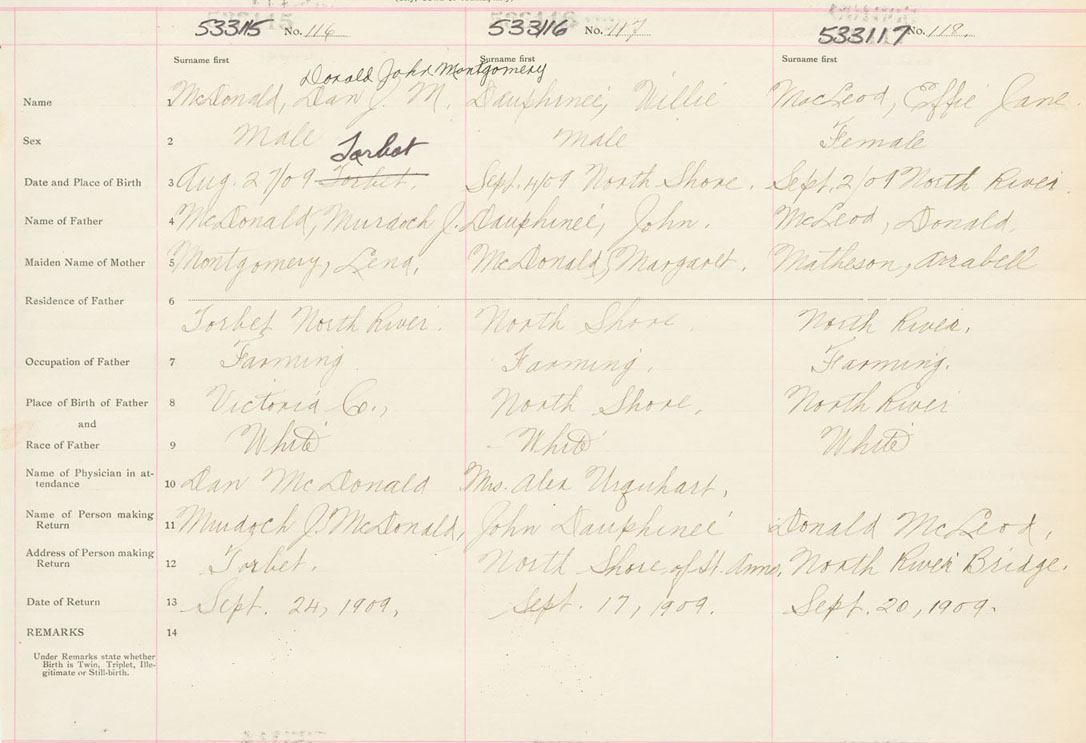 533115 No. 116 533116 No. 117 533117 No. 118.
Surname first Surname first Surname first
Donald John Montgomery
Name 1 McDonald, Dan J. M. Dauphineé, Willie MacLeod, Effie Jane.
Sex 2 Male Male Female
Torbot
Date and Place of Birth 3 Aug. 27/09 Torbet. Sept. 4/09 North Shore. Sept. 2/09 North River.
Name of Father 4 McDonald, Murdoch J. Dauphineé, John. McLeod, Donald.
Maiden Name of Mother 5 Montgomery, Lena, McDonald, Margaret. Matheson, Arrabell
Residence of Father 6
Torbet North River. North Shore. North River.
Occupation of Father 7 Farming Farming. Farming.
Place of Birth of Father 8 Victoria Co., North Shore, North River
and
Race of Father 9 White White White
Name of Physician in at-
tendance 10 Dan McDonald Mrs. Alex Urquhart,
Name of Person making
Return 11 Murdoch J. McDonald, John Dauphineé Donald McLeod,
Address of Person making
Return 12 Torbet. North Shore of St. Anns. North River Bridge.
Date of Return 13 Sept. 24, 1909, Sept. 17, 1909. Sept. 20, 1909.
REMARKS 14
Under Remarks state whether
Birth is Twin, Triplet, Ille-
gitimate or Still-birth.